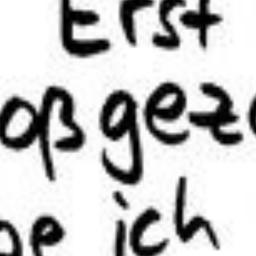 Erst
oßgeze
be ich